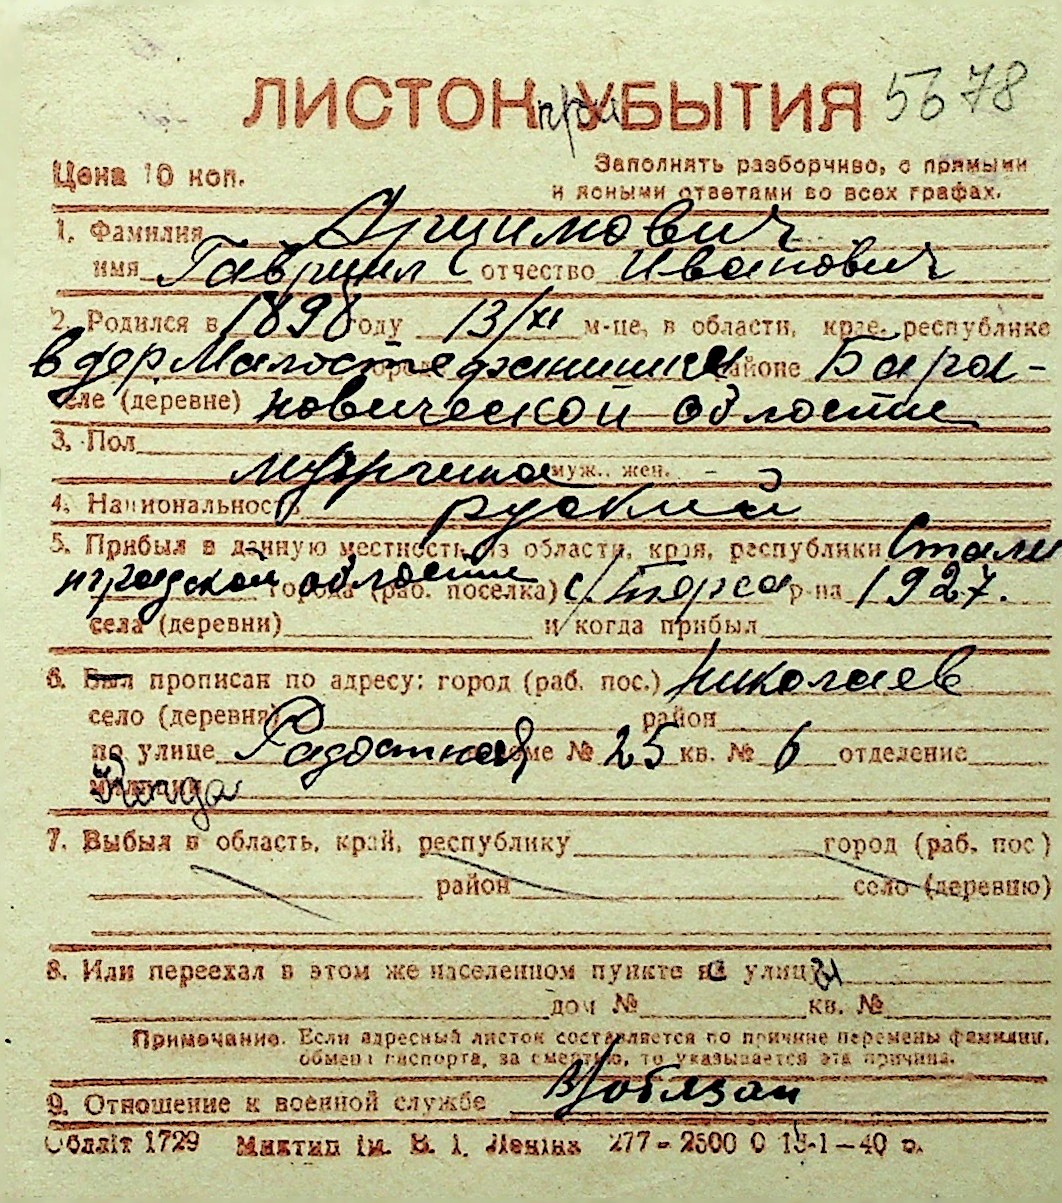 ЛИСТОК при УБЫТИЯ 5678
Цена 10 коп.
Заполнять разборчиво, с прямыми
и ясными ответами во всех графах.
1. Фамилия Арцимович
имя Гавриил отчество Иванович
2. Родился в 1898 году 13/XI м-це, в области, крае, республике
в дер. Малосте районе Бара-
селе (деревне) новической области
3. Пол мужчина муж., жен.
4. Национальность руский
5. Прибыл в данную местность из области, края, республики Стали
нградской области города (раб. поселка) р-на 1927.
села (деревни) и когда прибыл
6. Был прописан по адресу: город (раб. пос.) Николаев
село (деревня) район
по улице Радостная доме № 25 кв. № 6 отделение
милиции
7. Выбыл в область, край, республику город (раб. пос)
район село (деревню)
8. Или переехал в этом же населенном пункте на улицу
дом № кв. №
Примечание. Если адресный листок составляется по причине перемены фамилии,
обмена паспорта, за смертью, то указывается эта причина.
9. Отношение к военной службе в/обязан
Обллiт 1729 Миктип iм. В. I. Ленiна 277-2500 0 18-1-40 р.